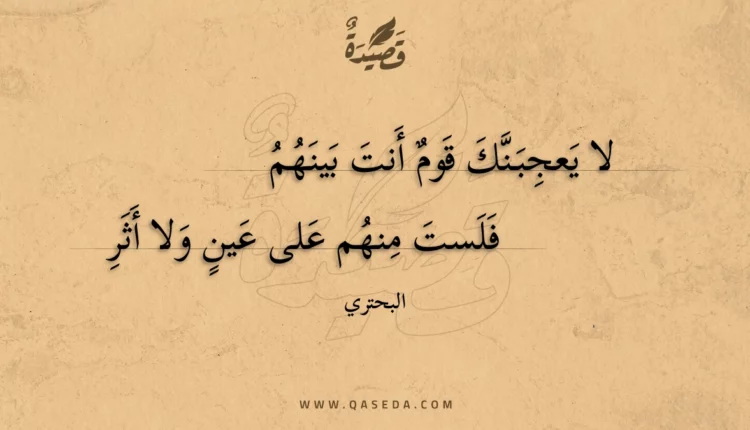 قَصِيدَةٌ
لا يَعجِبَنَّكَ قَومٌ أَنتَ بَينَهُمُ
فَلَستَ مِنهُم عَلى عَينٍ وَلا أَثَرِ
البحتري
WWW.QASEDA.COM